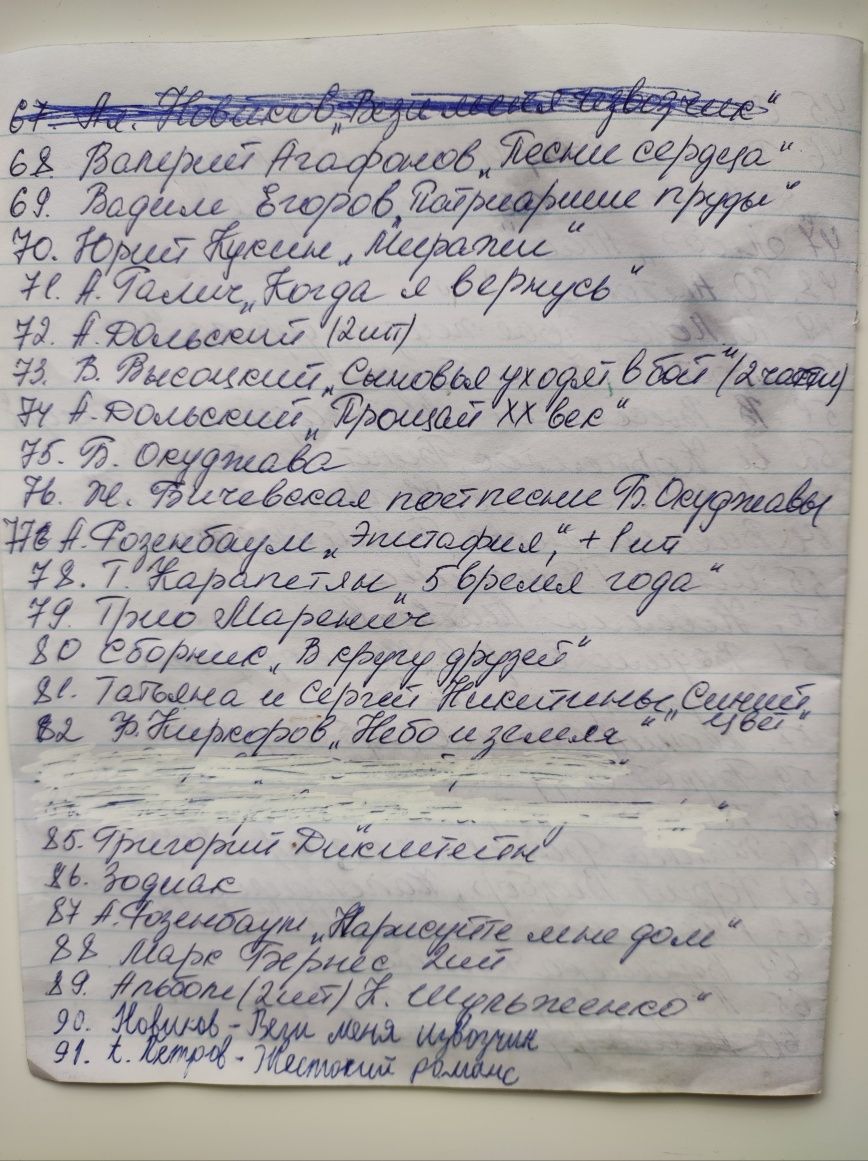 67. Ал. Новиков „Вези меня извозчик“
68 Валерий Агафонов „Песни сердца“
69. Вадим Егоров „Патриаршие пруды“
70. Юрий Кукин „Миражи“
71. А. Галич „Когда я вернусь“
72. А. Дольский (2шт)
73. В. Высоцкий „Сыновья уходят в бой“ (2 части)
74 А. Дольский „Прощай XX век“
75. Б. Окуджава
76. Ж. Бичевская поёт песни Б. Окуджавы
77 А. Розенбаум „Эпитафия“, + 1 шт
78. Т. Карапетян „5 время года“
79. Трио Маренич
80 Сборник „В кругу друзей“
81. Татьяна и Сергей Никитины „Синий
82 Ф. Киркоров „Небо и земля“ цвет“
85. Григорий Дикштейн
86. Зодиак
87 А. Розенбаум „Нарисуйте мне дом“
88 Марк Бернес 2шт
89. Альбом (2шт) К. Шульженко“
90. Новиков - Вези меня извозчик
91. А. Петров - Жестокий романс